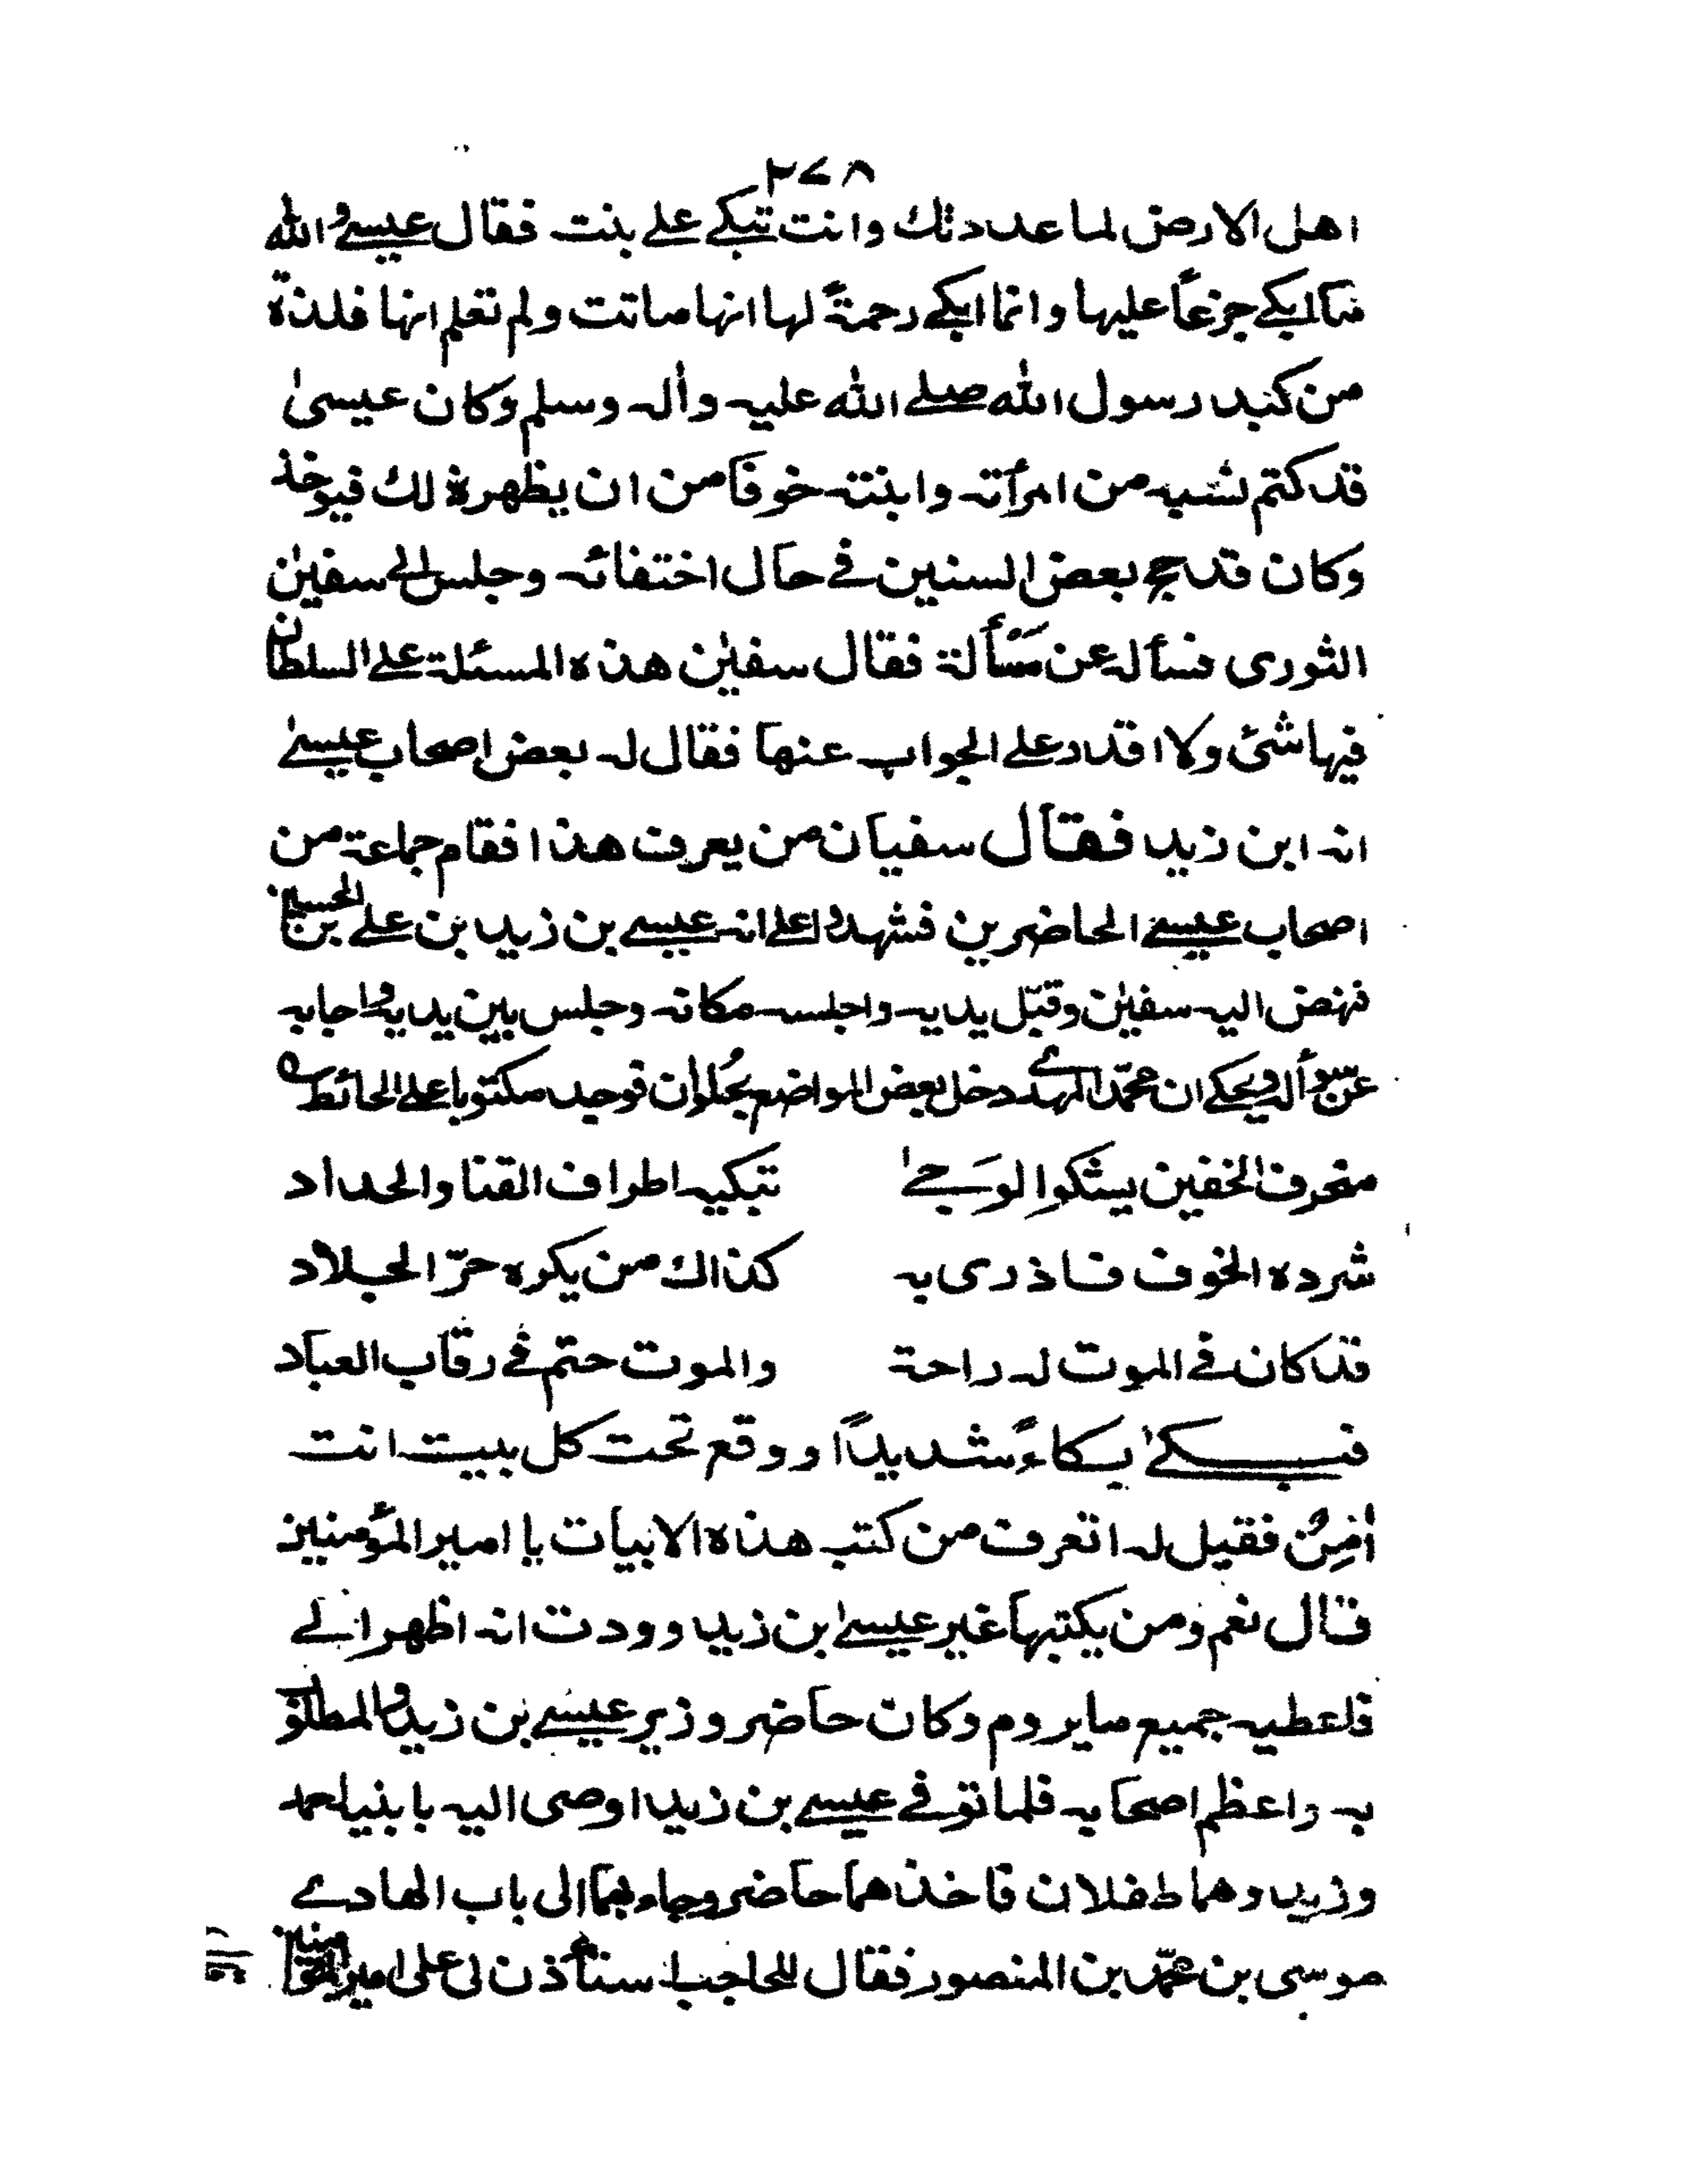 ٢٧٨
اهل الارض لما عددتك وانت تبكى على بنت فقال عيسى والله
ما ابكى جزعاً عليها وانما ابكى رحمةً لها انها ماتت ولم تعلم انها فلذة
من كبد رسول الله صلى الله عليه وأله وسلم وكان عيسىٰ
قد كتم نسبه من امرأته وابنته خوفا من ان يظهر ذلك فيوخذ
وكان قد حج بعض السنين فى حال اختفائه وجلس الى سفيٰن
الثورى فسأله عن مَسْأَلة فقال سفيٰن هذه المسئلة على السلطان
فيها شئ ولا اقدر على الجواب عنها فقال له بعض اصحاب عيسىٰ
انه ابن زيد فقال سفيان من يعرف هذا فقام جماعة من
اصحاب عيسى الحاضرين فشهدوا على انه عيسى بن زيد بن على بن الحسين
فنهض اليه سفيٰن وقبّل يديه واجلسه مكانه وجلس بين يديه واجابه
عن سوأله ويحكى ان محمّد المهدى دخل بعض المواضع بحُلوان فوجد مكتوبا على الحائط
منخرق الخفين يشكوا الوَجىٰ تبكيه اطراف القنا والحداد
شرده الخوف فاذرى به كذاك من يكره حرّ الجلاد
قد كان فى الموت له راحة والموت حتم فى رقاب العباد
فبكىٰ بكاءً شديداً ووقع تحت كل بيت انت
اٰمِنٌ فقيل له اتعرف من كتب هذه الابيات يا امير المؤمنين
قال نعم ومن يكتبها غير عيسىٰ بن زيد وودت انه اظهر الى
فاعطيه جميع ما يروم وكان حاضر وزير عيسى بن زيد والمطلوب
به واعظم اصحابه فلما توفى عيسى بن زيد اوصى اليه بابنيه احمد
وزيد وهما طفلان فاخذهما حاضر وجاء بهما الى باب الهادى
موسى بن محمّد بن المنصور فقال للحاجب استأذن لى على امير المؤمنين